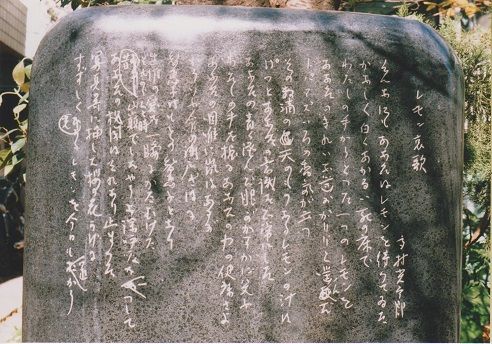 レモン哀歌
高村光太郎
そんなにもあなたはレモンを待つてゐた
かなしく白くあかるい死の床で
わたしの手からとつた一つのレモンを
あなたのきれいな歯ががりりと噛んだ
トパアズいろの香気が立つ
その数滴の天のものなるレモンの汁は
ぱつとあなたの意識を正常にした
あなたの青く澄んだ眼がかすかに笑ふ
わたしの手を握るあなたの力の健康さよ
あなたの咽喉に嵐はあるが
かういふ命の瀬戸ぎはに
智恵子はもとの智恵子となり
生涯の愛を一瞬にかたむけた
それからひと時
昔山巓でしたやうな深呼吸を一つして
あなたの機関はそれなり止まつた
写真の前に挿した桜の花かげに
すずしく光るレモンを今日も置かう